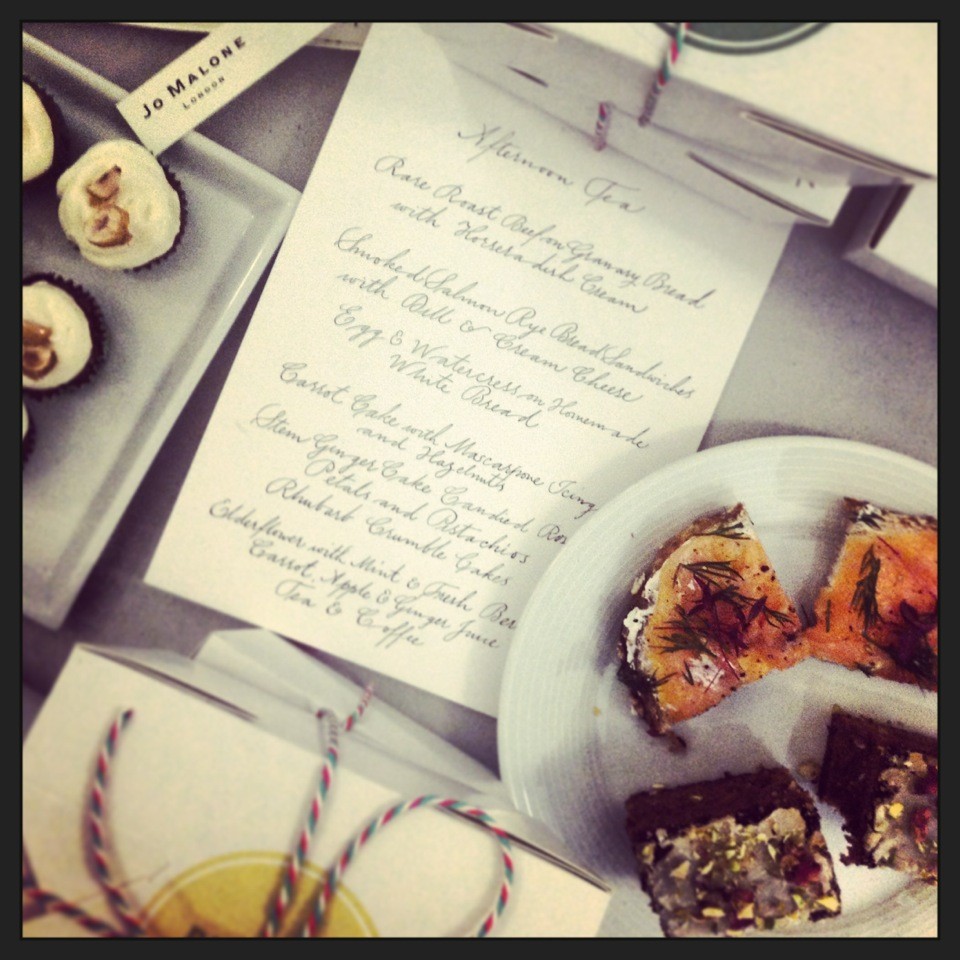 Jo MALONE
LONDON
Afternoon Tea
Rare Roast Beef on Granary Bread
with Horseradish Cream
Smoked Salmon Rye Bread Sandwiches
with Dill & Cream Cheese
Egg & Watercress on Homemade
White Bread
Carrot Cake with Mascarpone Icing
and Hazelnuts
Stem Ginger Cake Candied Ro
Petals and Pistachios
Rhubarb Crumble Cakes
Elderflower with Mint & Fresh Ber
Carrot, Apple & Ginger Juice
Tea & Coffee